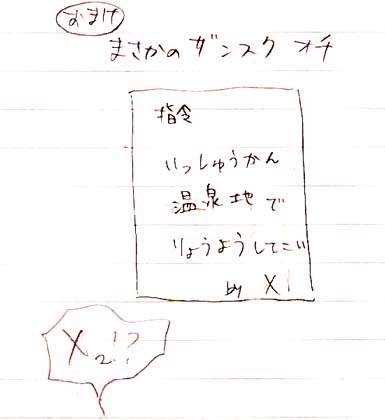 おまけ
まさかの ダンスク オチ
指令
いっしゅうかん
温泉地で
りょうようしてこい
by X!
X₂!?